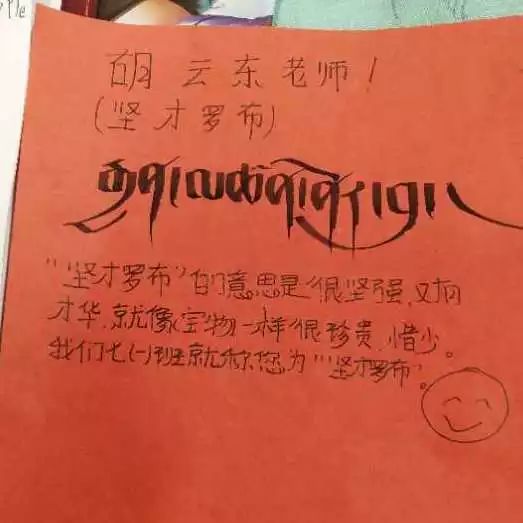 胡云东老师!
(坚才罗布)
“坚才罗布”的意思是很坚强,又有
才华,就像宝物一样很珍贵、惜少。
我们七(一)班就称您为“坚才罗布”。